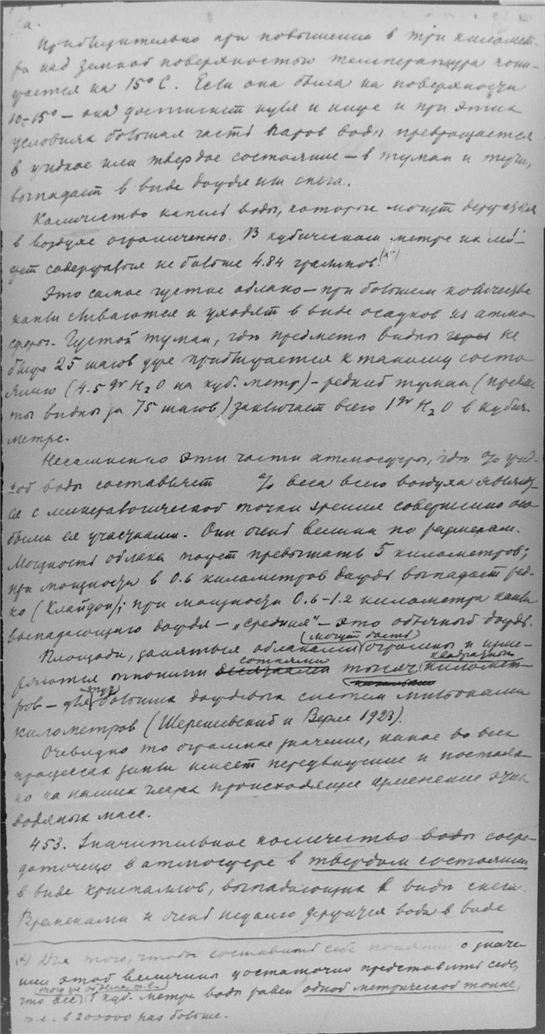 Приблизительно при повышении в три километ-
ра над земной поверхностью температура пони-
жается на 15° С. Если она была на поверхности
10-15° – она достигнет нуля и ниже и при этих
условиях большая часть паров воды превращается
в жидкое или твердое состояние – в туман и тучи,
выпадает в виде дождя или снега.
Количество капель воды, которое могут держаться
в воздухе ограниченно. В кубическом метре их мо-
жет содержаться не больше 4.84 граммов.
Это самое густое облако – при большем количестве
капли сливаются и уходят в виде осадков из атмо-
сферы. Густой туман, где предметы видны не
25 шагов уже приближается к такому состо-
янию (4.5 gr H2O на куб. метр) – редкий туман (предме-
ты видны за 75 шагов) заключает всего 1 gr H2O в кубич.
метре.
Несомненно эти части атмосферы, где % жид-
кой воды составляет % веса всего воздуха являют-
ся с минералогической точки зрения совершенно осо-
быми ее участками. Они очень велики по размерам.
Мощность облака может превышать 5 километров;
при мощности в 0.6 километров дождь выпадает ред-
ко (Клайдон); при мощности 0.6-1.2 километра капли
выпадающего дождя – „средния" – это обычный дождь.
Площади, занятые облаками, (могут быть) огромны и изме-
ряются многими сотнями тысяч квадратных километ-
ров – для больших дождевых систем миллионами
километров (Шерешевский и Верле 1923).
Очевидно то огромное значение, какое во всех
процессах земли имеет передвижение и постоян-
но на наших глазах происходящее изменение этих
водяных масс.
453. Значительное количество воды сосре-
доточено в атмосфере в твердом состоянии
в виде кристаллов, выпадающих в виде снега.
Временами и очень недолго держится вода в виде
Для того, чтобы составить себе понятие о значе-
нии этой величины достаточно представить себе,
что вес куб. метра воды равен одной метрической тонне,
т.е. в 200000 раз больше.